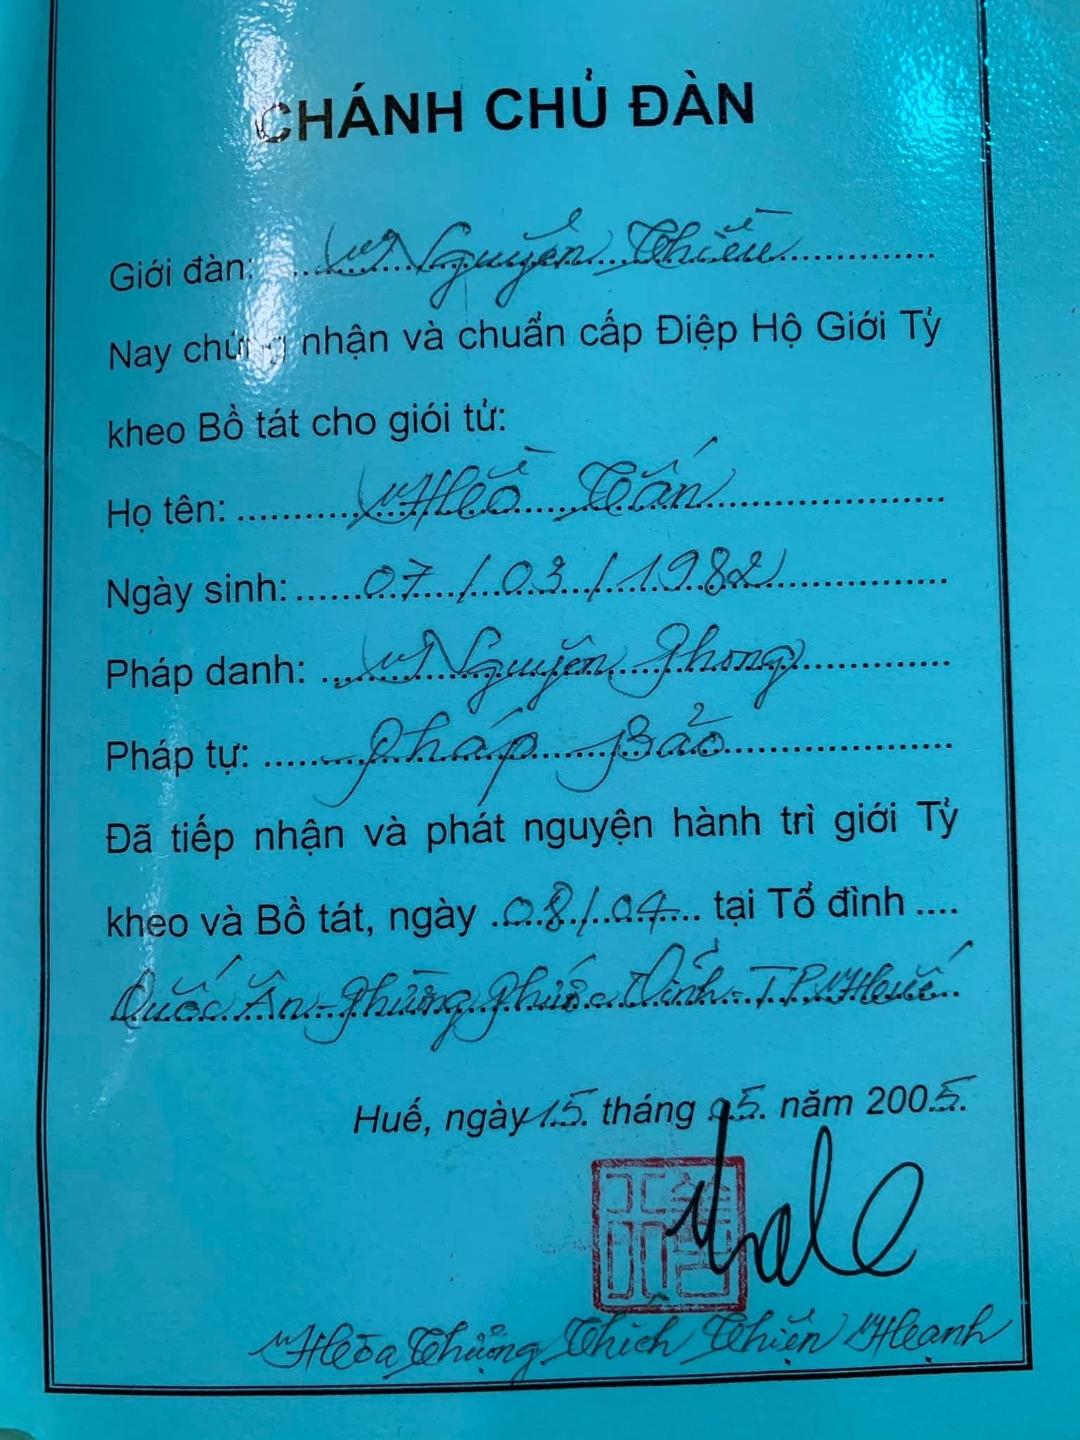 CHÁNH CHỦ ĐÀN
Giới đàn: Nguyên Thiều
Nay chứng nhận và chuẩn cấp Điệp Hộ Giới Tỷ
kheo Bồ tát cho giới tử:
Họ tên: Hồ Tấn
Ngày sinh: 07/03/1982
Pháp danh: Nguyên Phong
Pháp tự: Pháp Bảo
Đã tiếp nhận và phát nguyện hành trì giới Tỷ
kheo và Bồ tát, ngày 08/04 tại Tổ đình ....
Quốc Ân - Phường Phước Vĩnh - TP Huế
Huế, ngày 15 tháng 05 năm 2005.
Hòa Thượng Thích Thiện Hạnh